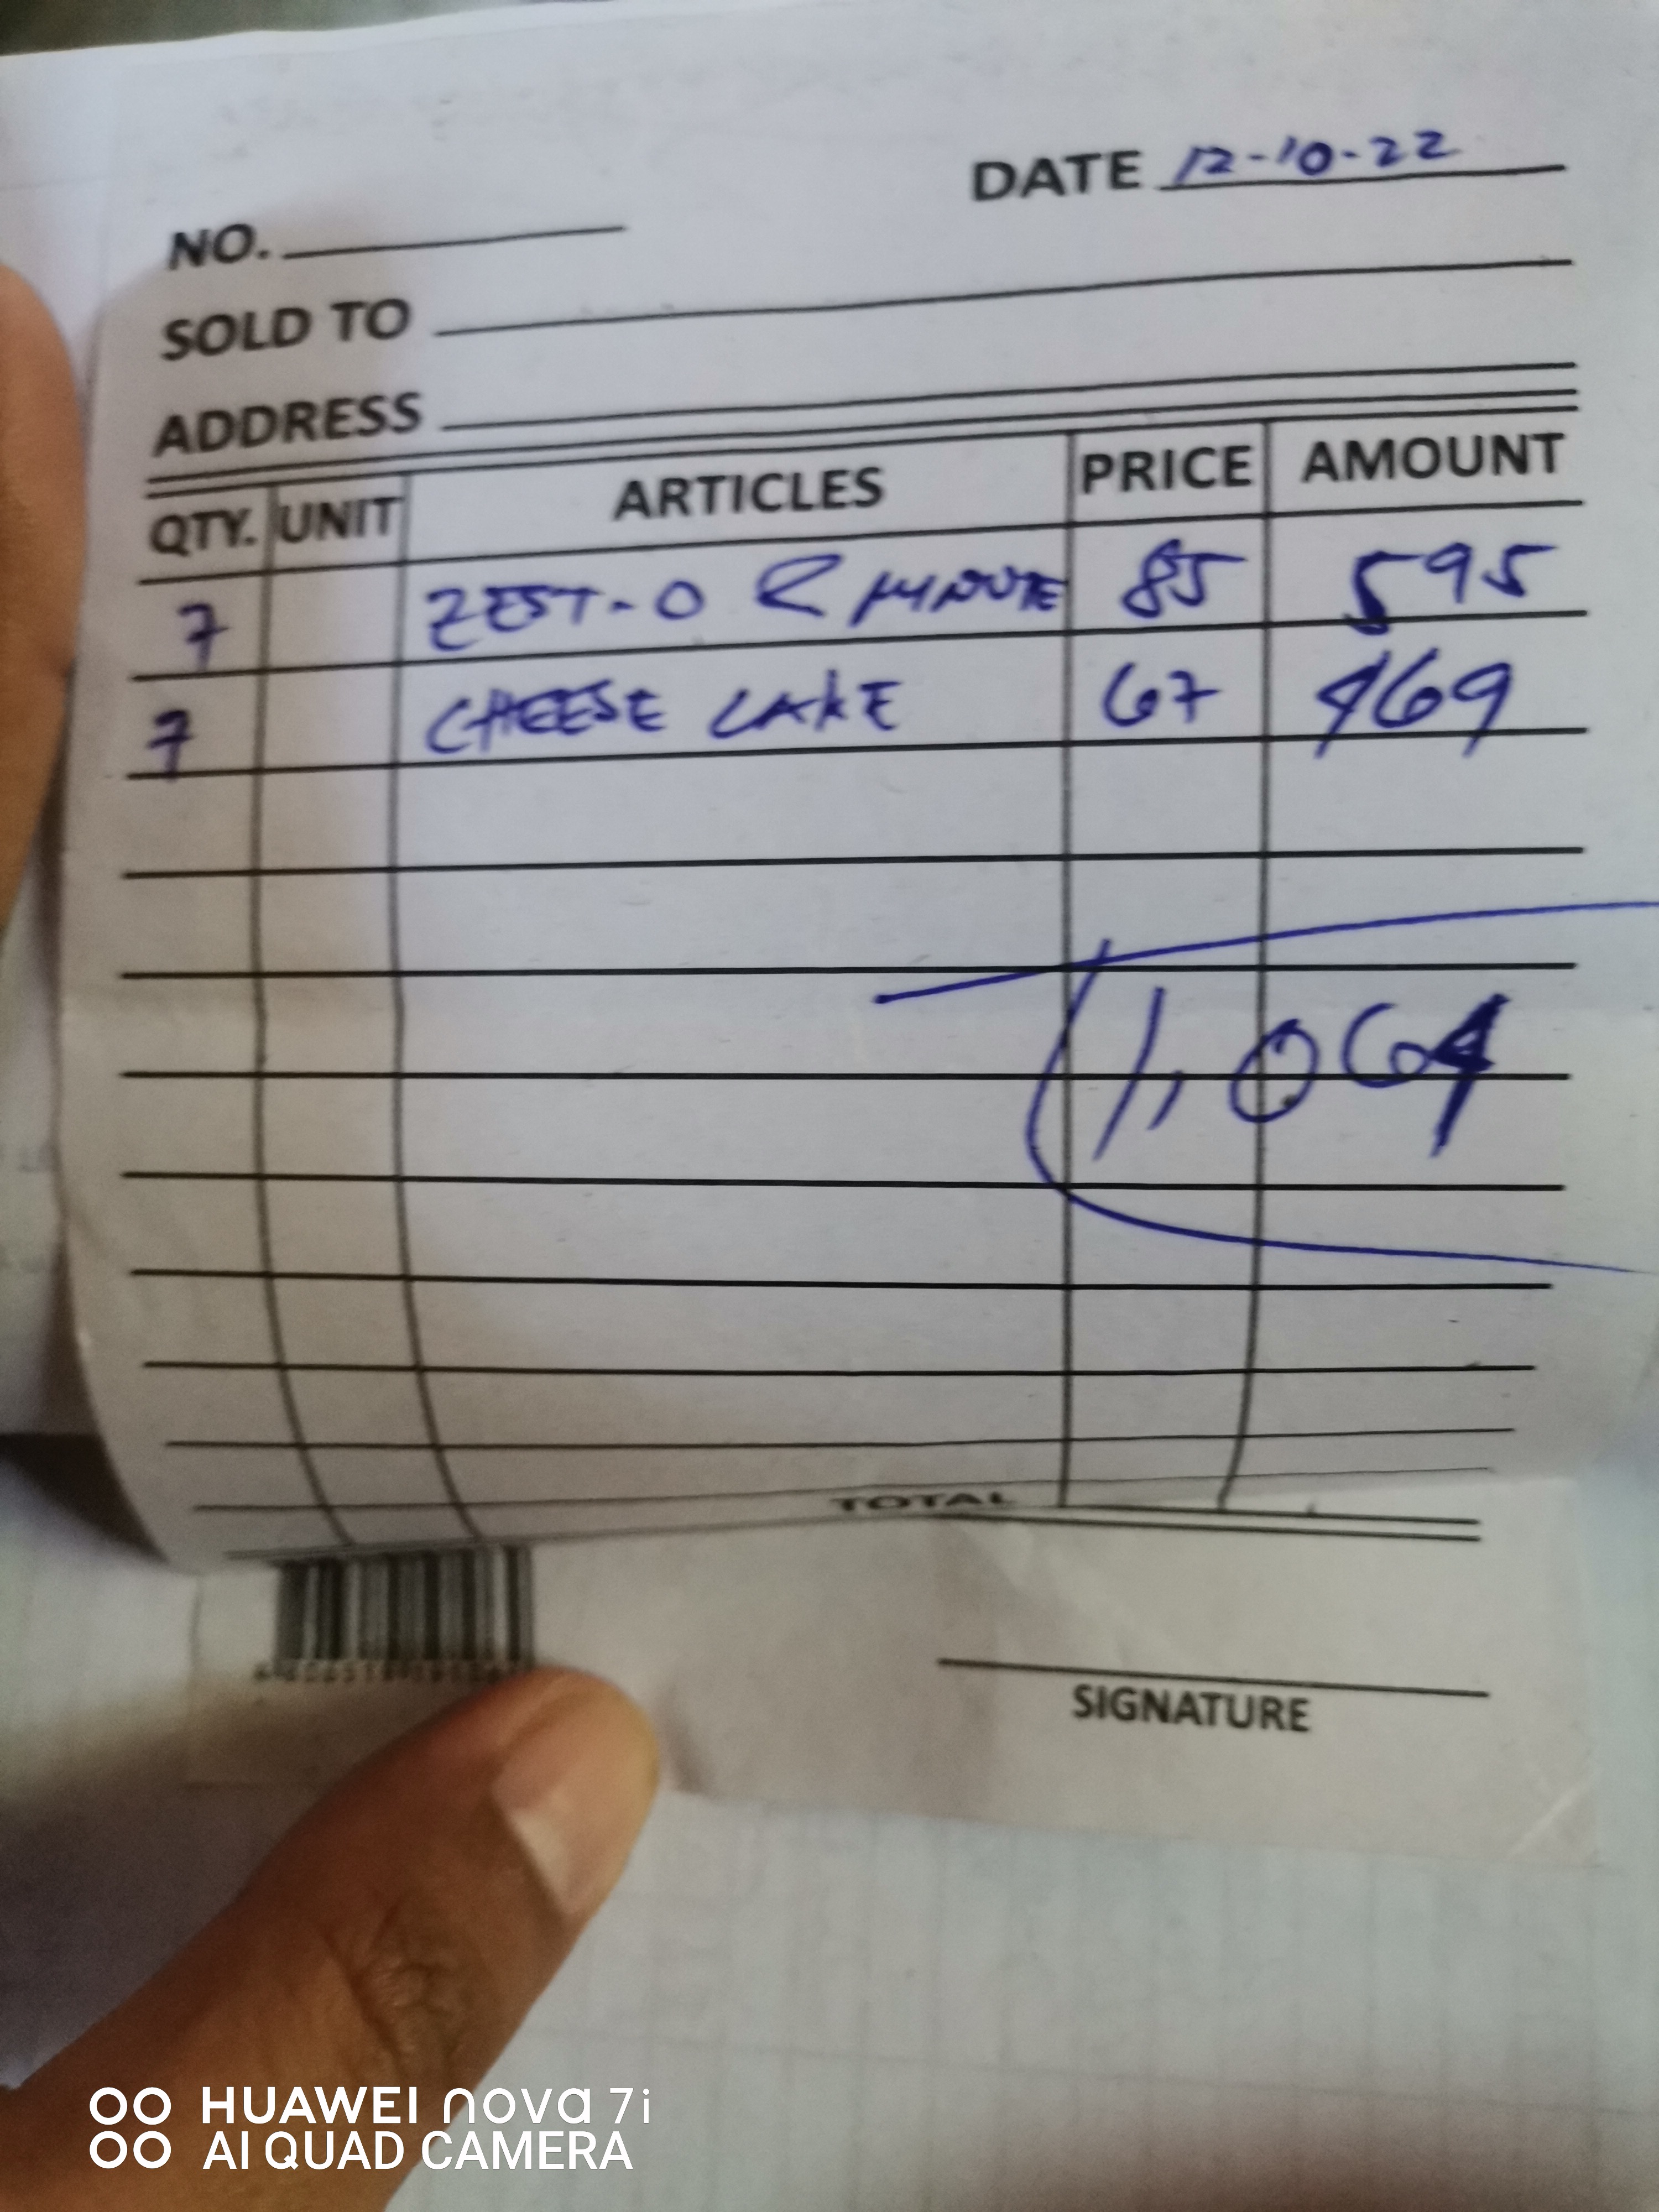 DATE 12-10-22
NO.
SOLD TO
ADDRESS
QTY. UNIT ARTICLES PRICE AMOUNT
7 ZEST-O & MINUTE 85 595
7 CHEESE CAKE 67 469
1,064
TOTAL
SIGNATURE
HUAWEI nova 7i
AI QUAD CAMERA